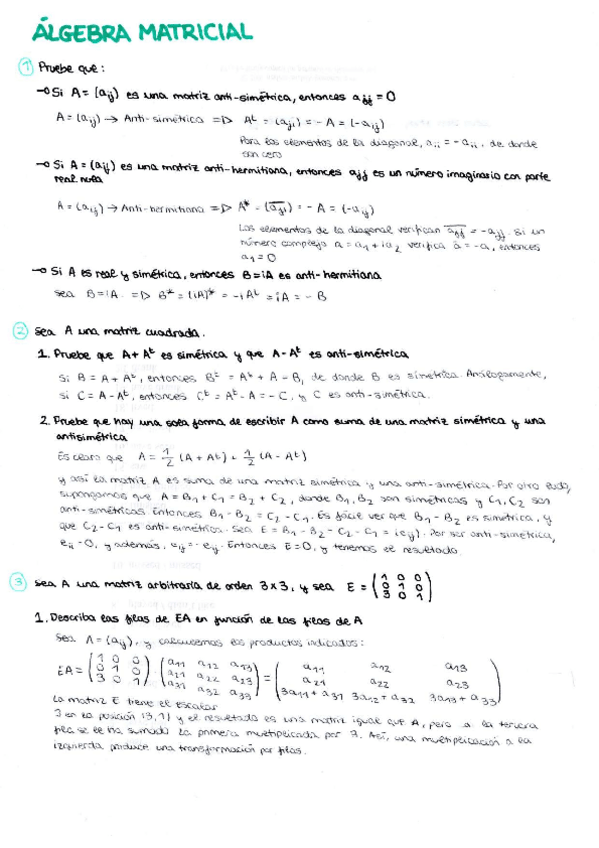 ÁLGEBRA MATRICIAL
1 Pruebe que:
→ Si A = (aij) es una matriz anti-simétrica, entonces ajj = 0
A = (aij) → Anti-simétrica => Aᵗ = (aji) = - A = (-aij)
Para los elementos de la diagonal, aii = - aii, de donde
son cero
→ Si A = (aij) es una matriz anti-hermitiana, entonces ajj es un número imaginario con parte
real nula
A = (aij) → Anti-hermitiana => A* = (a̅j̅i̅) = - A = (-aij)
Los elementos de la diagonal verifican a̅j̅j̅ = -ajj. Si un
número complejo a = a1 + ia2 verifica a̅ = -a, entonces
a1 = 0
→ Si A es real y simétrica, entonces B = iA es anti-hermitiana
Sea B = iA => B* = (iA)* = -iAᵗ = -iA = - B
2 Sea A una matriz cuadrada.
1. Pruebe que A + Aᵗ es simétrica y que A - Aᵗ es anti-simétrica
Si B = A + Aᵗ, entonces Bᵗ = Aᵗ + A = B, de donde B es simétrica. Análogamente,
si C = A - Aᵗ, entonces Cᵗ = Aᵗ - A = - C, y C es anti-simétrica.
2. Pruebe que hay una sola forma de escribir A como suma de una matriz simétrica y una
antisimétrica
Es claro que A = 1/2 (A + Aᵗ) + 1/2 (A - Aᵗ)
y así la matriz A es suma de una matriz simétrica y una anti-simétrica. Por otro lado,
supongamos que A = B1 + C1 = B2 + C2, donde B1, B2 son simétricas y C1, C2 son
anti-simétricas. Entonces B1 - B2 = C2 - C1. Es fácil ver que B1 - B2 es simétrica, y
que C2 - C1 es anti-simétrica. Sea E = B1 - B2 = C2 - C1 = (eij). Por ser anti-simétrica,
eii = 0, y además, eij = - eij. Entonces E = 0, y tenemos el resultado.
3 Sea A una matriz arbitraria de orden 3x3, y sea E = (1 0 0
0 1 0
3 0 1)
1. Describa las filas de EA en función de las filas de A
Sea A = (aij), y calculemos los productos indicados:
EA = (1 0 0) · (a11 a12 a13) = (a11 a12 a13)
(0 1 0) (a21 a22 a23) (a21 a22 a23)
(3 0 1) (a31 a32 a33) (3a11 + a31 3a12 + a32 3a13 + a33)
La matriz E tiene el escalar
3 en la posición (3,1) y el resultado es una matriz igual que A, pero a la tercera
fila se le ha sumado la primera multiplicada por 3. Así, una multiplicación a la
izquierda produce una transformación por filas.